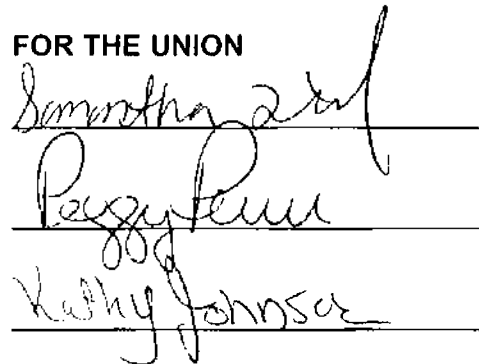 FOR THE UNION
Samantha
Peggy Penn
Kathy Johnson